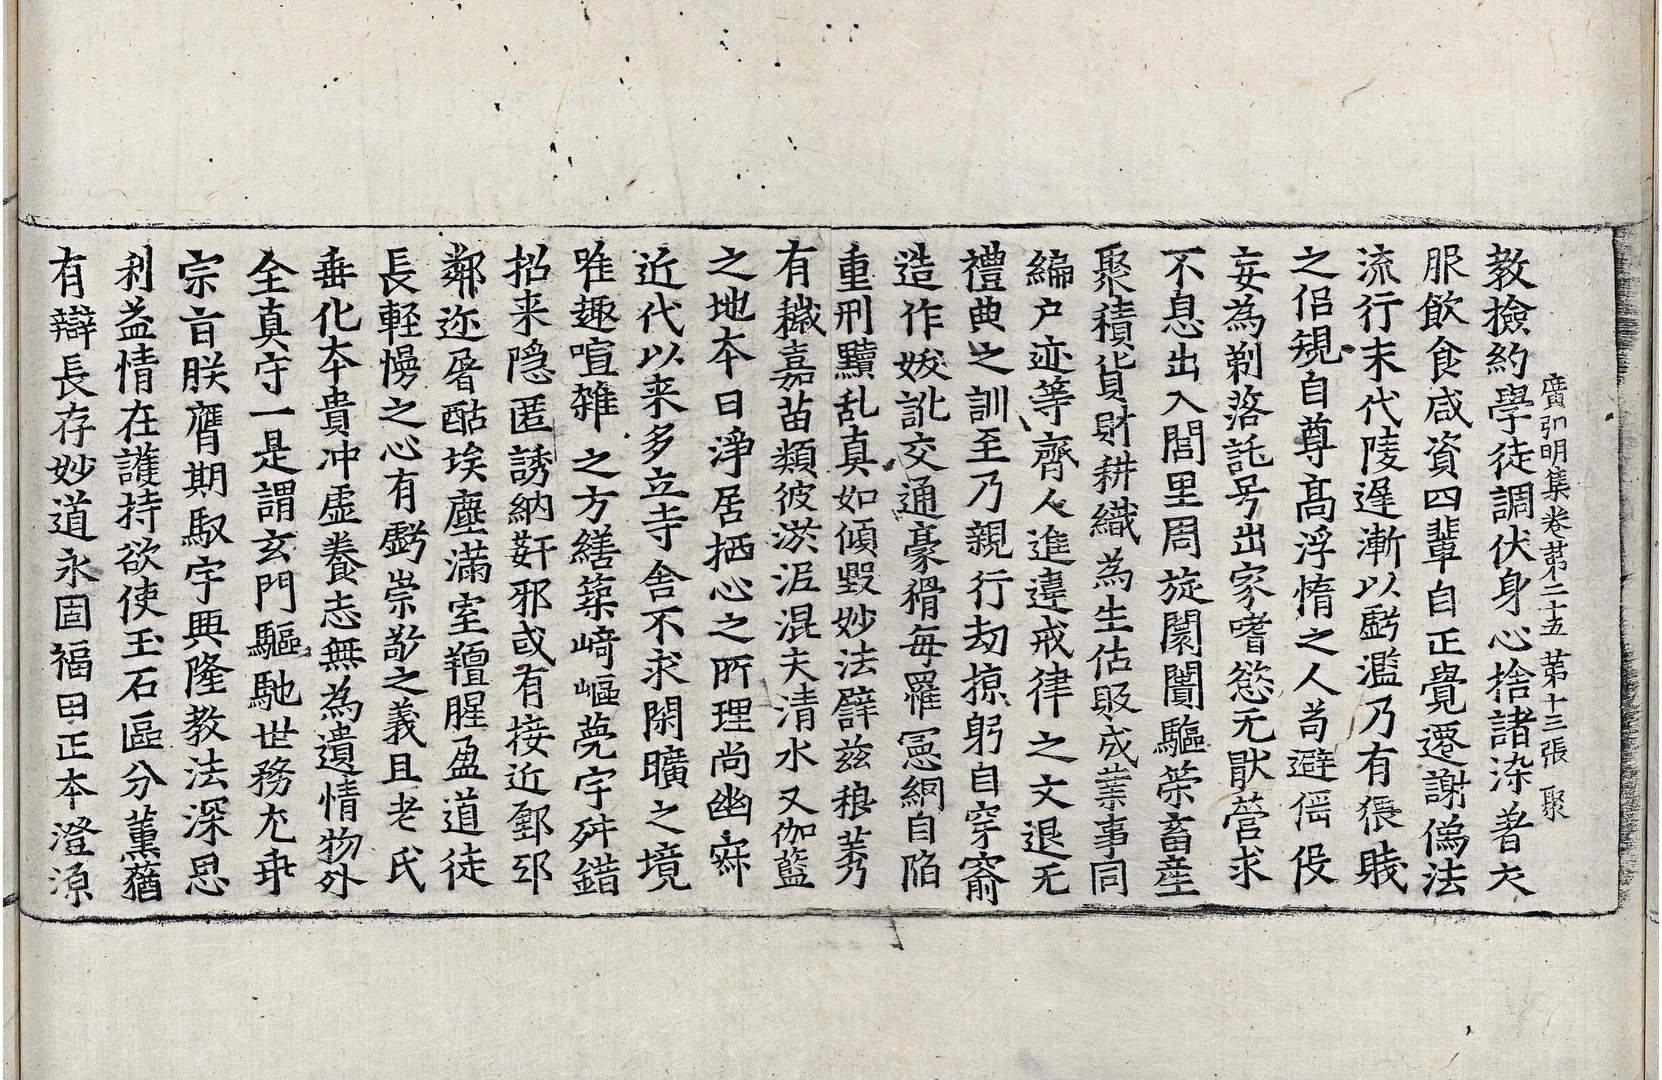 廣弘明集卷第二十五　第十三張　聚
教撿約學徒調伏身心捨諸染著衣
服飲食咸資四輩自正覺遷謝僞法
流行末代陵遲漸以虧濫乃有猥賎
之侣規自尊髙浮惰之人苟避徭役
妄為剃落託号出家嗜慾无猒營求
不息出入閭里周旋闤闠驅䇿畜産
聚積貨財耕織為生估販成業事同
編户迹等齊人進違戒律之文退无
禮典之訓至乃親行劫掠躬自穿窬
造作妖訛交通豪猾每罹憲網自陷
重刑黷乱真如傾毀妙法譬兹稂莠
有穢嘉苗類彼淤泥混夫清水又伽藍
之地夲曰淨居栖心之所理尚幽寂
近代以来多立寺舍不求閑曠之境
唯趣喧雜之方繕築崎嶇甍宇舛錯
招来隐匿誘納姧邪或有接近鄽邸
鄰迩屠酤埃塵滿室羶腥盈道徒
長軽慢之心有虧崇敬之義且老氏
垂化夲貴冲虚養志無為遺情物外
全真守一是謂玄門驅馳世務尤乖
宗旨朕膺期馭宇興隆教法深思
利益情在護持欲使玉石區分薰蕕
有辯長存妙道永固福田正本澄源